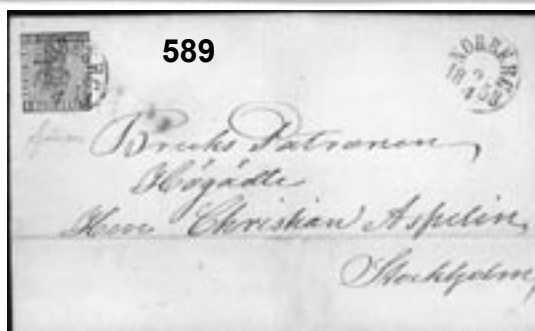 589
NORRKÖPING
18 2
4 58
Bruks Patronen
Högädle
Herr Christian Aspelin,
Stockholm,